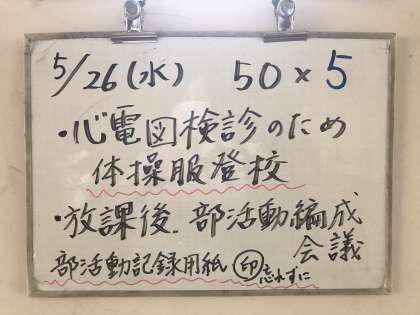 5/26(水) 50×5
・心電図検診のため
体操服登校
・放課後.部活動編成
会議
部活動記録用紙 印 忘れずに